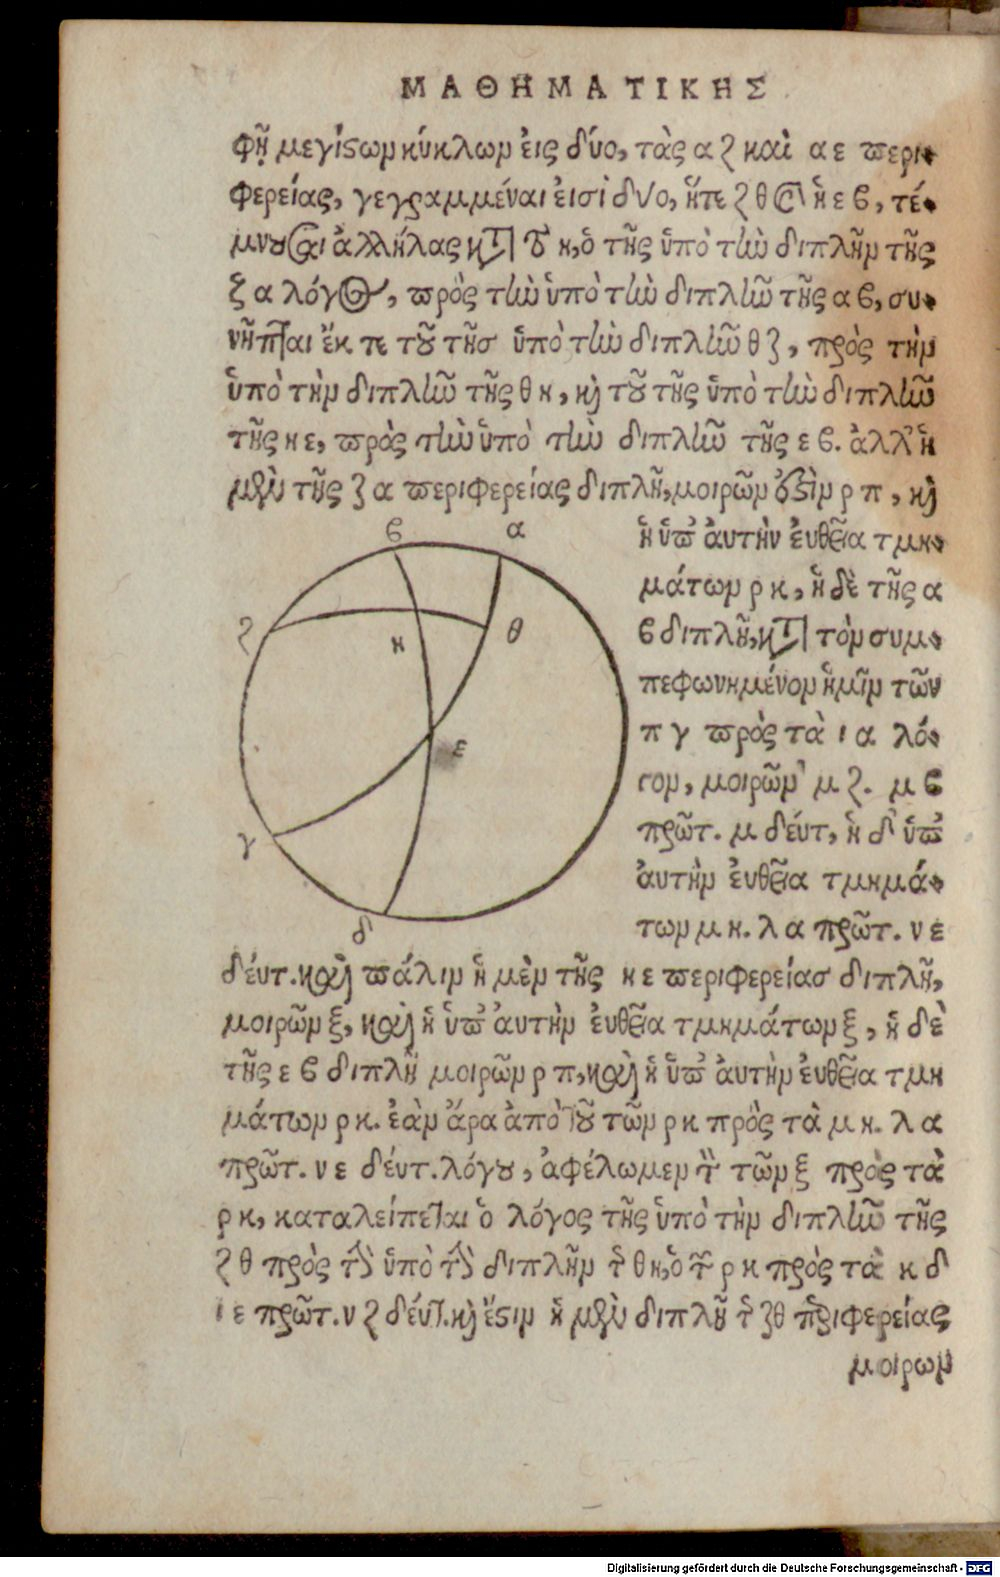 ΜΑΘΗΜΑΤΙΚΗΣ
φῇ μεγίϛων κύκλων εἰς δύο, τὰς α ζ καὶ α ε περι-
φερείας, γεγραμμέναι εἰσὶ δύο, ἥτε ζ θ καὶ ἡ ε ϐ, τέ-
μνουσαι ἀλλήλας κατὰ τὸ κ, ὁ τῆς ὑπὸ τὴν διπλῆν τῆς
ζ α λόγος, πρὸς τὴν ὑπὸ τὴν διπλῆν τῆς α ϐ, συ-
νῆπται ἔκ τε τοῦ τῆσ ὑπὸ τὴν διπλῆν θ ζ, πρὸς τὴν
ὑπὸ τὴν διπλῆν τῆς θ κ, κὶ τοῦ τῆς ὑπὸ τὴν διπλῆν
τῆς κ ε, πρὸς τὴν ὑπὸ τὴν διπλῆν τῆς ε ϐ. ἀλλ' ἡ
μὲν τῆς ζ α περιφερείας διπλῆ, μοιρῶν ὀϛὶν ρ π, κὶ
ϐ α
ἡ ὑπ' ἀυτὴν ἐυθεῖα τμη-
μάτων ρ κ, ἡ δὲ τῆς α
ζ κ θ
ϐ διπλῆ, κατὰ τὸν συμ-
πεφωνημένον ἡμῖν τῶν
π γ πρὸς τὰ ι α λό-
ε
γον, μοιρῶν μ ζ. μ ϐ
γ
πρῶτ. μ δέυτ, ἡ δ' ὑπ'
ἀυτὴν ἐυθεῖα τμημά-
δ
των μ η. λ α πρῶτ. ν ε
δέυτ. καὶ πάλιν ἡ μὲν τῆς κ ε περιφερείασ διπλῆ,
μοιρῶν ξ, καὶ ἡ ὑπ' ἀυτὴν ἐυθεῖα τμημάτων ξ, ἡ δὲ
τῆς ε ϐ διπλῆ μοιρῶν ρ π, καὶ ἡ ὑπ' ἀυτὴν ἐυθεῖα τμη
μάτων ρ κ. ἐὰν ἄρα ἀπὸ τοῦ τῶν ρ κ πρὸς τὰ μ η. λ α
πρῶτ. ν ε δέυτ. λόγου, ἀφέλωμεν τὸν τῶν ξ πρὸς τὰ
ρ κ, καταλείπεται ὁ λόγος τῆς ὑπὸ τὴν διπλῆν τῆς
ζ θ πρὸς τὴν ὑπὸ τὴν διπλῆν τῆς θ κ, ὁ τῶν ρ κ πρὸς τὰ κ δ
ι ε πρῶτ. ν ζ δέυτ. κὶ ἔϛιν ἡ μὲν διπλῆ τῆς ζθ περιφερείας
μοιρων
Digitalisierung gefördert durch die Deutsche Forschungsgemeinschaft - DFG